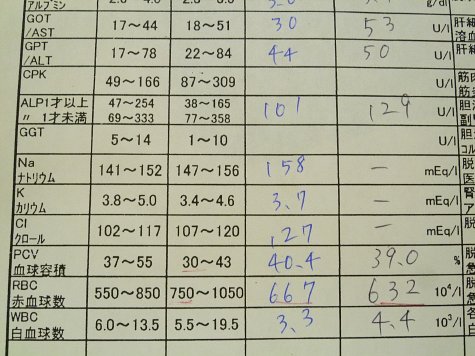 アルブミン g/dl
GOT /AST 17～44 18～51 30 53 U/l
GPT /ALT 17～78 22～84 44 50 U/l
CPK 49～166 87～309 U/l
ALP1才以上 47～254 38～165 101 129 U/l
〃 1才未満 69～333 77～358
GGT 5～14 1～10 U/l
Na ナトリウム 141～152 147～156 158 － mEq/l
K カリウム 3.8～5.0 3.4～4.6 3.7 － mEq/l
Cl クロール 102～117 107～120 127 － mEq/l
PCV 血球容積 37～55 30～43 40.4 39.0 %
RBC 赤血球数 550～850 750～1050 667 632 10⁴/l
WBC 白血球数 6.0～13.5 5.5～19.5 3.3 4.4 10³/l